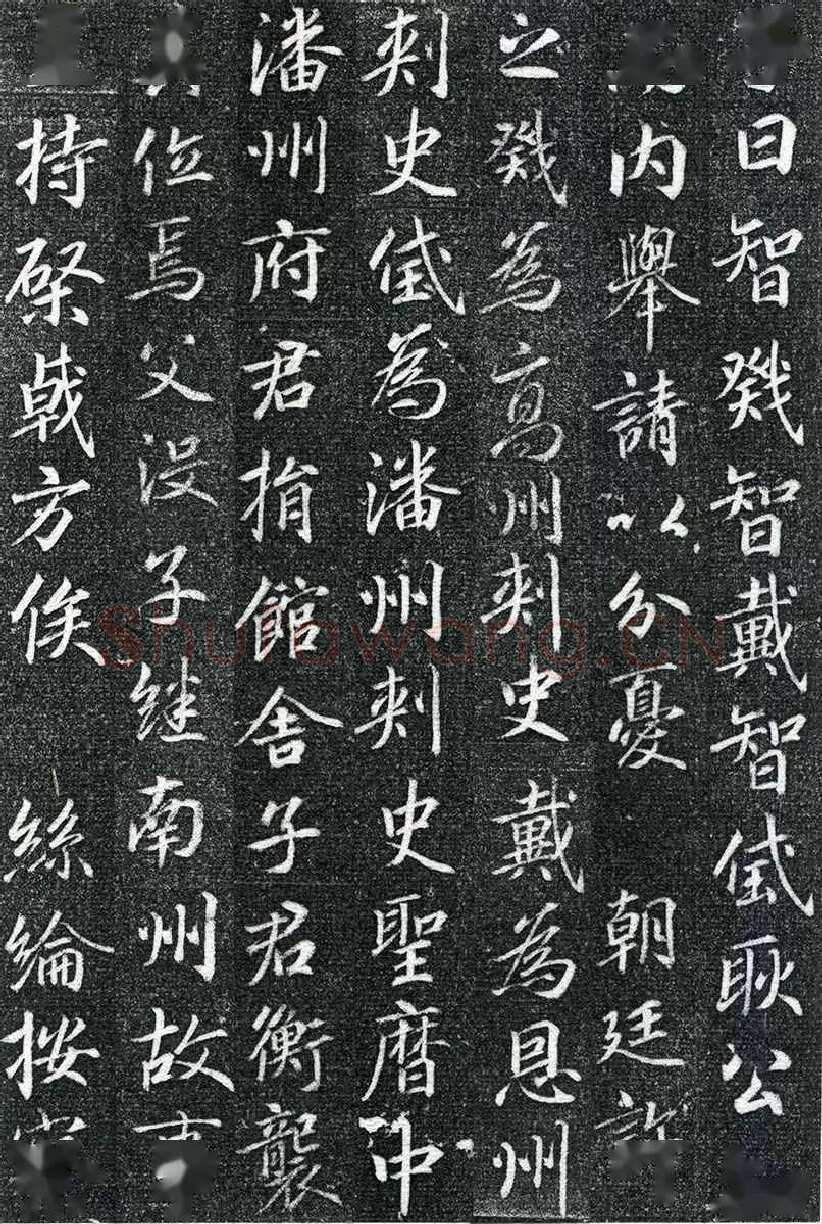 曰智戣智戴智㦽耿公
内舉請以分憂朝廷許
之戣為高州刺史戴為恩州
刺史㦽為潘州刺史聖曆中
潘州府君捐館舍子君衡襲
位焉父没子継南州故事
持棨戟方俟絲綸按
Shufawang.CN